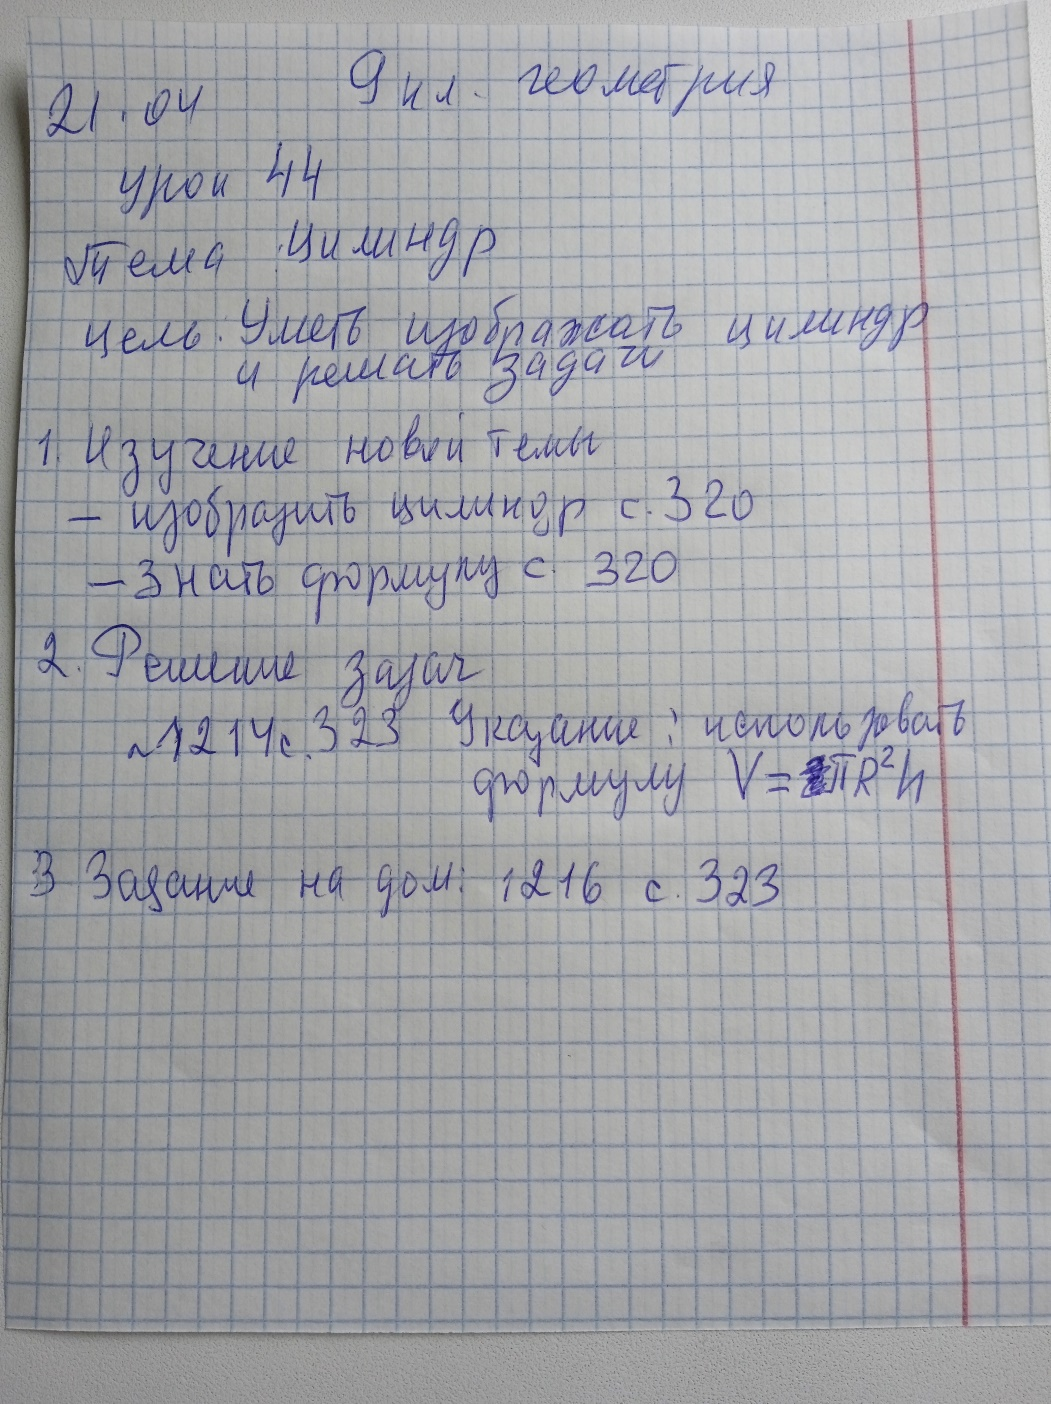 9 кл. геометрия
21.04
урок 44
Тема Цилиндр
цель: Уметь изображать цилиндр
и решать задачи
1. Изучение новой темы
– изобразить цилиндр с. 320
– Знать формулу с. 320
2. Решение задач
№1214 с. 323 Указание: использовать
формулу V=πR²h
3 Задание на дом: 1216 с. 323